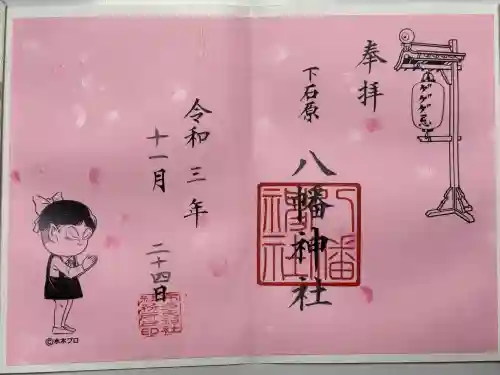 奉拝
下石原
八幡神社
令和三年
十一月
二十四日
ゲゲゲ忌
八幡神社
©水木プロ